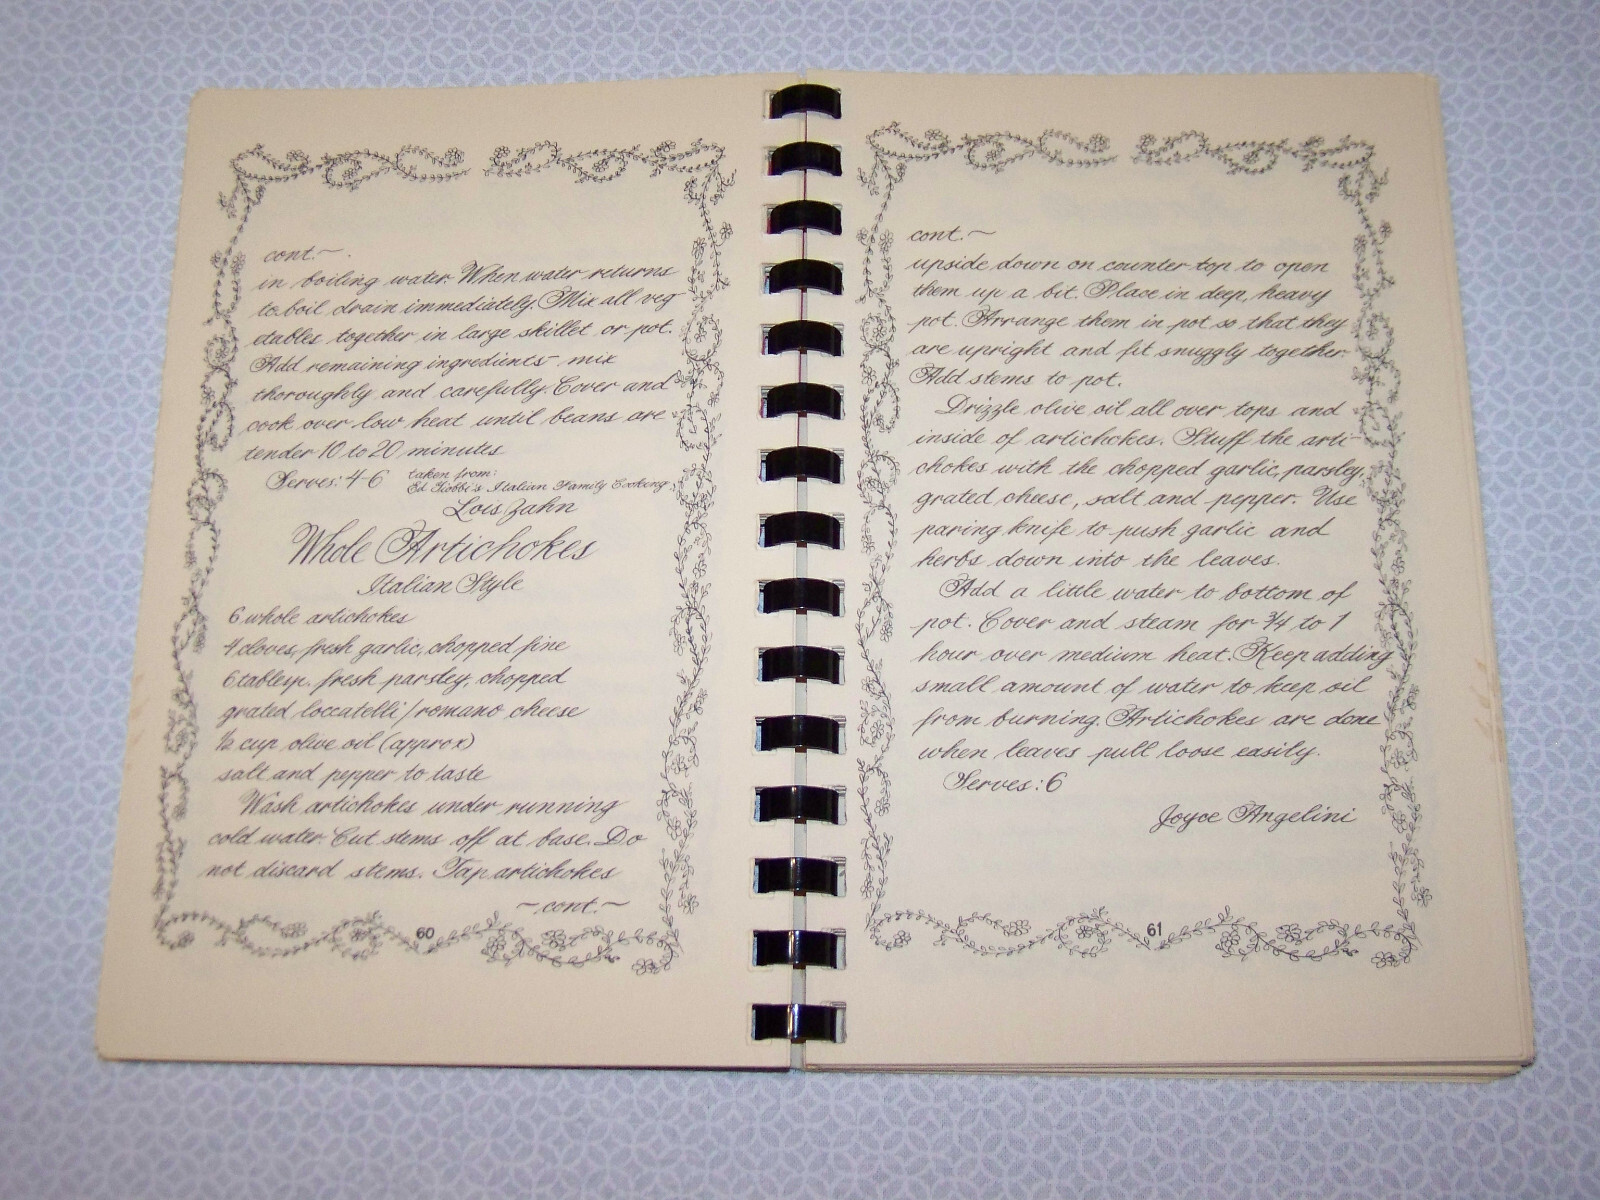 cont.~
in boiling water. When water returns
to boil drain immediately. Mix all veg
etables together in large skillet or pot.
Add remaining ingredients - mix
thoroughly and carefully. Cover and
cook over low heat until beans are
tender 10 to 20 minutes
Serves: 4-6
taken from:
Ed Giobbi's Italian Family Cooking
Lois Zahn
Whole Artichokes
Italian Style
6 whole artichokes
4 cloves, fresh garlic, chopped fine
6 tablesp. fresh parsley, chopped
grated loccatelli/romano cheese
½ cup olive oil (approx)
salt and pepper to taste
Wash artichokes under running
cold water. Cut stems off at base. Do
not discard stems. Tap artichokes
~cont.~
60
cont.~
upside down on counter top to open
them up a bit. Place in deep, heavy
pot. Arrange them in pot so that they
are upright and fit snuggly together.
Add stems to pot.
Drizzle olive oil all over tops and
inside of artichokes. Stuff the arti-
chokes with the chopped garlic, parsley,
grated cheese, salt and pepper. Use
paring knife to push garlic and
herbs down into the leaves.
Add a little water to bottom of
pot. Cover and steam for ¾ to 1
hour over medium heat. Keep adding
small amount of water to keep oil
from burning. Artichokes are done
when leaves pull loose easily.
Serves: 6
Joyce Angelini
61